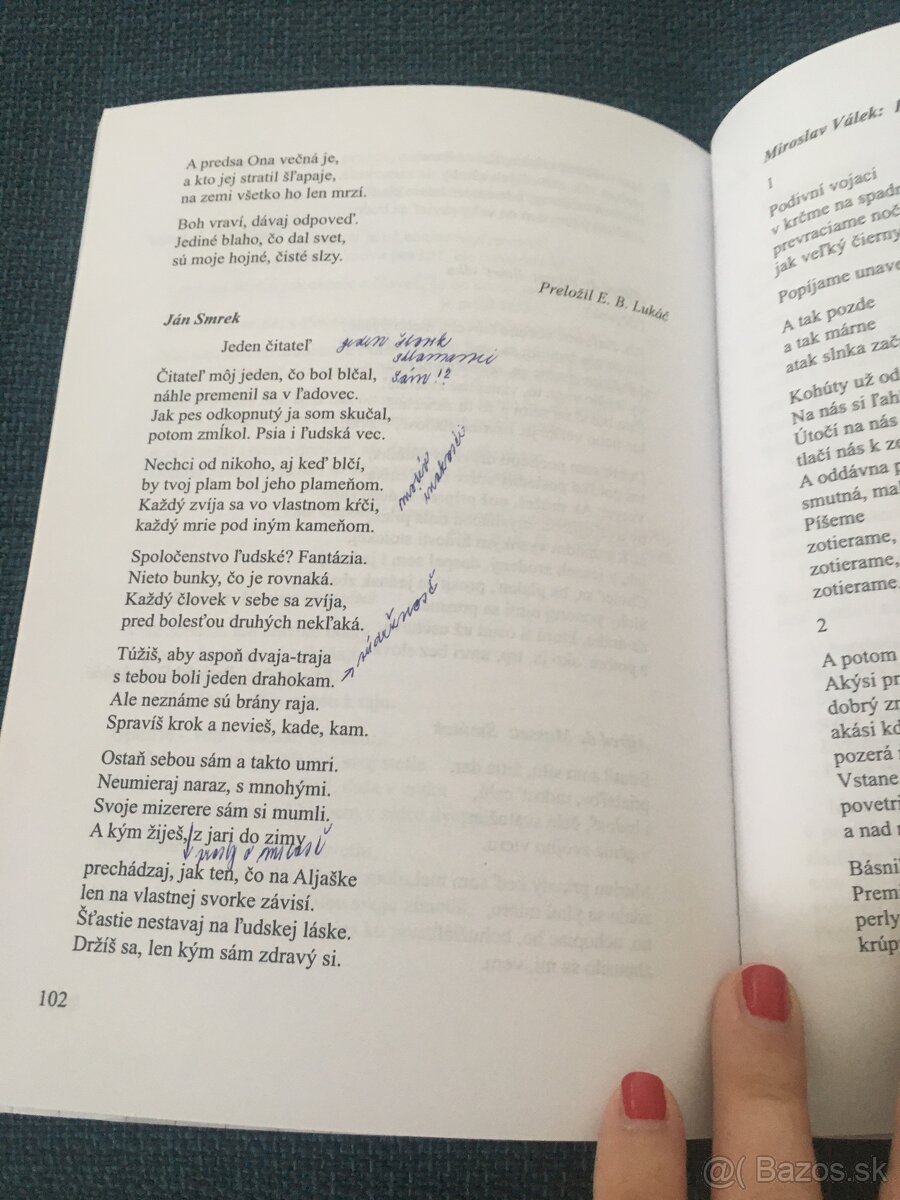 A predsa Ona večná je,
a kto jej stratil šľapaje,
na zemi všetko ho len mrzí.
Boh vraví, dávaj odpoveď.
Jediné blaho, čo dal svet,
sú moje hojné, čisté slzy.
Preložil E. B. Lukáč
Ján Smrek
Jeden čitateľ jeden
Čitateľ môj jeden, čo bol blčal, sám!?
náhle premenil sa v ľadovec.
Jak pes odkopnutý ja som skučal,
potom zmĺkol. Psia i ľudská vec.
Nechci od nikoho, aj keď blčí,
by tvoj plam bol jeho plameňom.
Každý zvíja sa vo vlastnom kŕči,
každý mrie pod iným kameňom.
Spoločenstvo ľudské? Fantázia.
Nieto bunky, čo je rovnaká.
Každý človek v sebe sa zvíja,
pred bolesťou druhých nekľaká.
Túžiš, aby aspoň dvaja-traja
s tebou boli jeden drahokam. → súdržnosť
Ale neznáme sú brány raja.
Spravíš krok a nevieš, kade, kam.
Ostaň sebou sám a takto umri.
Neumieraj naraz, s mnohými.
Svoje mizerere sám si mumli.
A kým žiješ, z jari do zimy
prechádzaj, jak ten, čo na Aljaške
len na vlastnej svorke závisí.
Šťastie nestavaj na ľudskej láske.
Držíš sa, len kým sám zdravý si.
102
Miroslav Válek:
1
Podivní vojaci
v krčme na
prevraciame
jak veľký
Popíjame
A tak pozde
a tak márne
atak slnka
Kohúty už
Na nás si
Útočí na nás
tlačí nás k
A oddávna
smutná,
Píšeme
zotierame,
zotierame,
zotierame.
2
A potom
Akýsi
dobrý
akási
pozerá
Vstane
povetri
a nad
perly
@( Bazos.sk